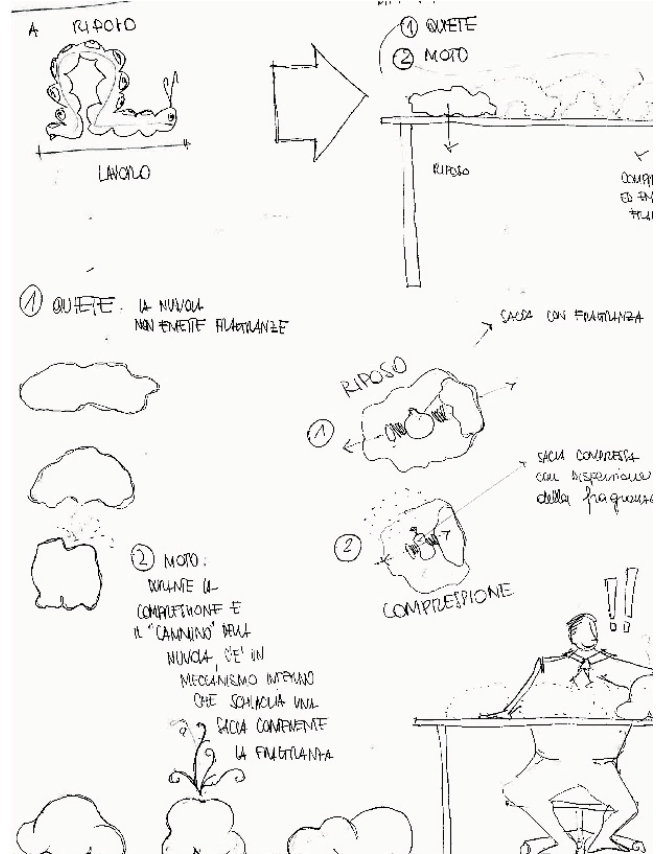 A RIPOSO
LAVORO
1 QUIETE
2 MOTO
RIPOSO
1 QUIETE: LA NUVOLA
NON EMETTE FRAGRANZE
SACCA CON FRAGRANZA
RIPOSO
1
SACCA COMPRESSA
con dispersione
della fragranza
2
COMPRESSIONE
2 MOTO:
DURANTE LA
COMPRESSIONE E
IL "CAMMINO" DELLA
NUVOLA, C'E' UN
MECCANISMO INTERNO
CHE SCHIACCIA UNA
SACCA CONTENENTE
LA FRAGRANZA
!!